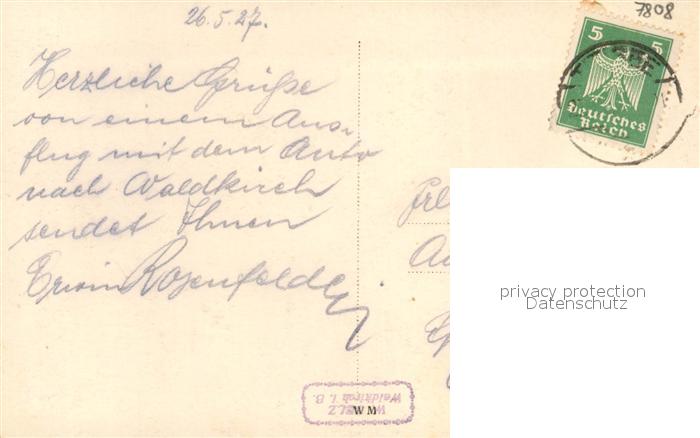 26.5.27.
7808
Herzliche Grüße
von einem Aus-
flug mit dem Auto
nach Waldkirch
sendet Ihnen
Erwin Rosenfelder
5 5
Deutsches
Reich
Frl
privacy protection
Datenschutz
Waldkirch i. B.
WM